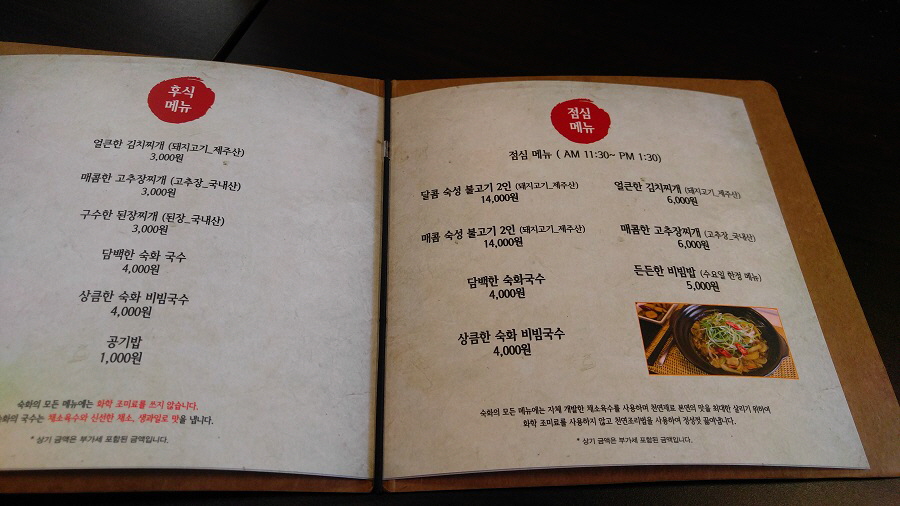 후식
메뉴
얼큰한 김치찌개 (돼지고기_제주산)
3,000원
매콤한 고추장찌개 (고추장_국내산)
3,000원
구수한 된장찌개 (된장_국내산)
3,000원
담백한 숙화 국수
4,000원
상큼한 숙화 비빔국수
4,000원
공기밥
1,000원
숙화의 모든 메뉴에는 화학 조미료를 쓰지 않습니다.
숙화의 국수는 채소육수와 신선한 채소, 생과일로 맛을 냅니다.
* 상기 금액은 부가세 포함된 금액입니다.
점심
메뉴
점심 메뉴 ( AM 11:30~ PM 1:30)
달콤 숙성 불고기 2인 (돼지고기_제주산)
14,000원
매콤 숙성 불고기 2인 (돼지고기_제주산)
14,000원
담백한 숙화국수
4,000원
상큼한 숙화 비빔국수
4,000원
얼큰한 김치찌개 (돼지고기_제주산)
6,000원
매콤한 고추장찌개 (고추장_국내산)
6,000원
든든한 비빔밥 (수요일 한정 메뉴)
5,000원
숙화의 모든 메뉴에는 자체 개발한 채소육수를 사용하며 천연재료 본연의 맛을 최대한 살리기 위하여
화학 조미료를 사용하지 않고 천연조리법을 사용하여 정성껏 끓여냅니다.
* 상기 금액은 부가세 포함된 금액입니다.